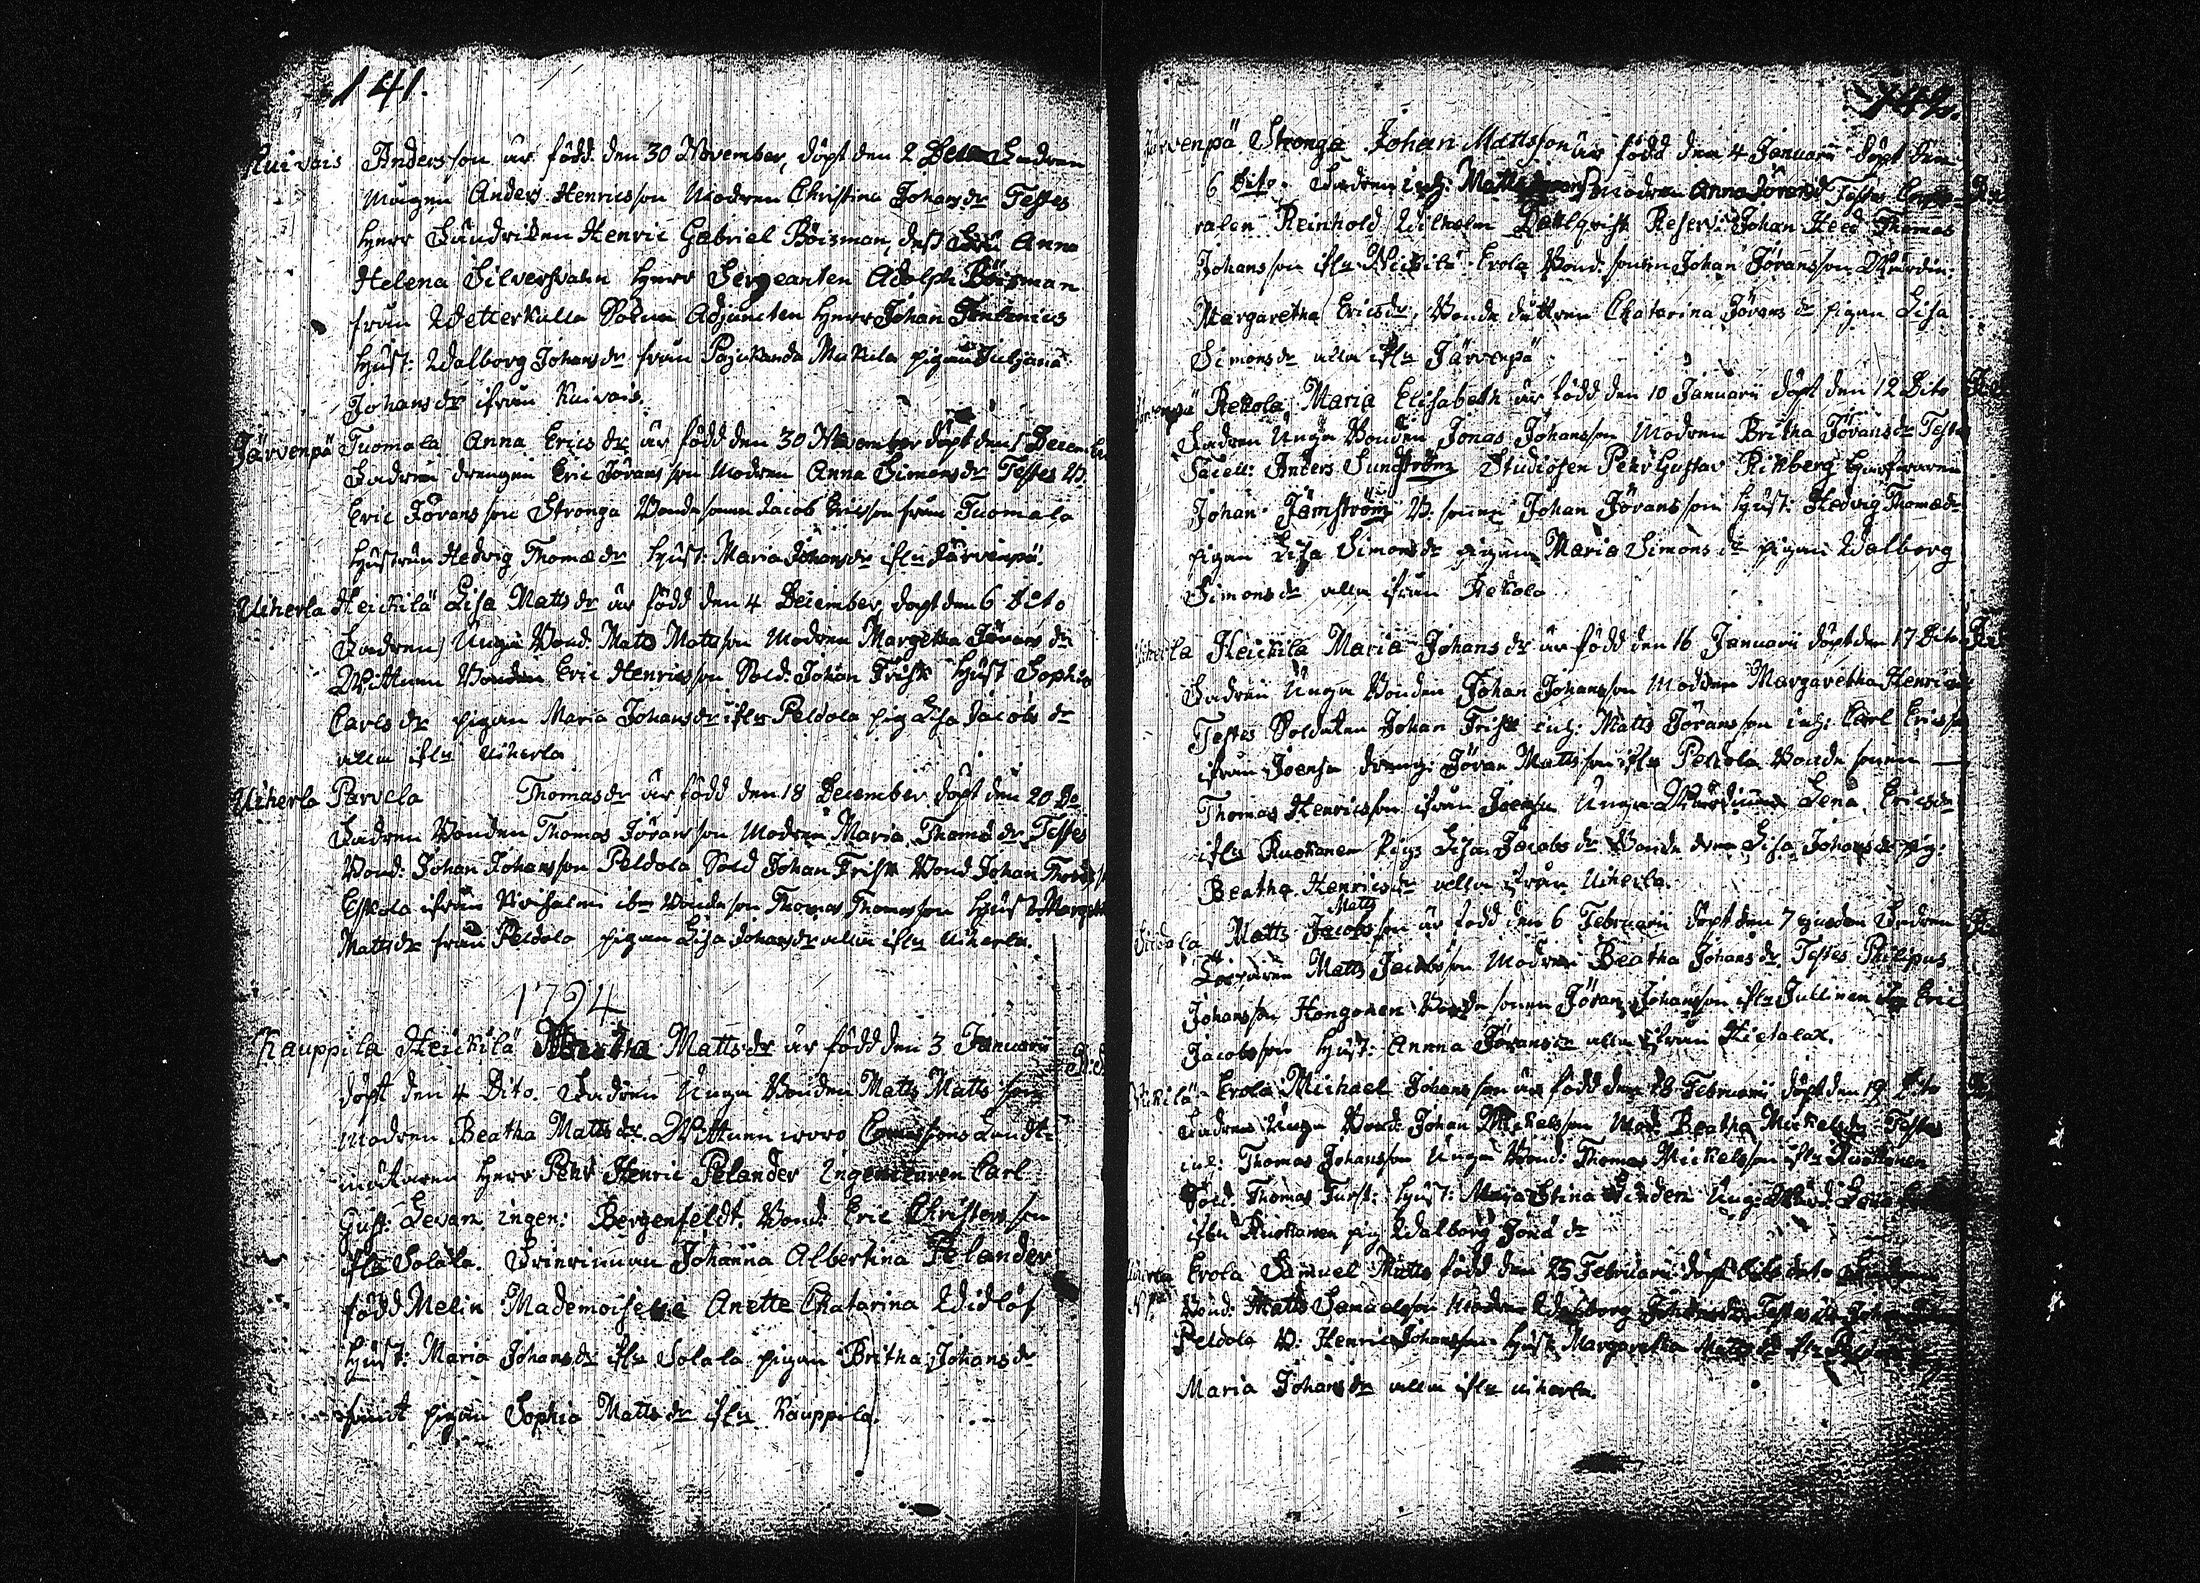 141.
Kuivais Andersson är född den 30 November, döpt den 2 Dece Fadren
Anders Henricsson Modren Christina Johansdr Testes
Herr Henric Gabriel Böisman, dess Fru Anna
Helena Silfversvahn Herr Sergeanten Adolph Böisman
från Wetterkulla Adjuncten Herr Johan
Hust: Walborg Johansdr från Mukila pigan Juliana
Johansdr ifrån Kuivais.
Järvenpä Tuomala Anna Ericsdr är född den 30 November döpt den 1 Decemb
Fadren drengen Eric Göransson Modren Anna Simonsdr Testes B.
Eric Göransson Stronga Bondesonen Jacob Ericsson från Tuomala
Hustrun Hedvig Thomædr Hust: Maria Johansdr ifrn Järvenpä.
Uiherla Heickilä Lisa Mattsdr är född den 4 December döpt den 6 Dito
Fadren Unga Bond: Matts Mattsson Modren Margetha Göransdr
Wittnen Bonden Eric Henricsson Sold: Johan Frisk Hust Sophia
Carlsdr pigan Maria Johansdr ifrn Peldola pig Lisa Jacobsdr
alla ifrn Uiherla
Uiherla Parvela Thomasdr är född den 18 December döpt den 20 Do
Fadren Bonden Thomas Göransson Modren Maria Thomædr Testes
Bond: Johan Johansson Peldola Sold Johan Frisk Bond Johan
Eskola ifrån ibm Bondeson Thomas Thomasson Hust Marget
Mattsdr från Peldola pigan Lisa Johansdr alla ifrn Uiherla.
1794
Kauppila Heickilä Beatha Mattsdr är född den 3 Januarii
döpt den 4 Dito. Fadren Unga Bonden Matts Mattsson
Modren Beatha Mattsdr. Wittnen woro Landt-
mätaren Herr Pehr Henric Pelander Ingenieuren Carl
Gust: Levan, ingen: Bergenfeldt. Bond: Eric Christersson
ifrn Solala. Johanna Albertina Pelander
född Melin Mademoiselle Anette Chatarina Widlöf
Hust: Maria Johansdr ifrn Solala pigan Britha Johansdr
samt pigan Sophia Mattsdr ifrn Kauppila.
142.
Järvenpä Stronga Johan Mattsson är född den 4 Januarii döpt den
6 Dito. Fadren inh: Matts Modren Anna Göransdr Testes
ralen Reinhold Wilhelm Reserv: Johan Heed Thomas
Johansson ifrn Wickilä Erola Bond: sonen Johan Göransson Wärdin:
Margaretha Ericsdr, Bonde dottren Chatarina Göransdr pigan Lisa
Simonsdr alla ifrn Järvenpä
Rekola Maria Elisabeth är född den 10 Januarii döpt den 12 Dito
Fadren Unga Bonden Jonas Johansson Modren Britha Göransdr Testes
Sacell: Anders Sundström Studiosen Pehr Gustav Rikberg
Johan Jämström B. sonen Johan Göransson Hust: Hedvig Thomædr
pigan Lisa Simonsdr pigan Maria Simonsdr pigan Walborg
Simonsdr alla ifrån Rekola
Uiherla Heickilä Maria Johansdr är född den 16 Januarii döpt den 17 Dito
Fadren Unga Bonden Johan Johansson Modren Margaretha Henricsdr
Testes Soldaten Johan Frisk inh: Matts Göransson inh: Carl Ericsson
ifrån Joensu dreng: Göran Mattsson ifrn Peldola Bonde sonen
Thomas Henricsson ifrån Joensu Unga Wärdinnan Lena Ericsdr
ifrn Ruohanen Pig: Lisa Jacobsdr Bonde Lisa Johansdr pig:
Beatha Henricsdr alla ifrån Uiherla.
Matts
Matts Jacobsson är född den 6 Februarii döpt den 7 ejusdem Fadren
Matts Jacobsson Modren Beatha Johansdr Testes Philipus
Johansson Hongonen Bonde sonen Göran Johansson ifrn Jullinen Eric
Jacobsson Hust: Annna Göransdr alla ifrån Hietalax.
Wickilä Erola Michael Johansson är född den 18 Februarii döpt den 19 Dito
Fadren Unga Bond: Johan Mickelsson Mod: Beatha Mickelsdr Testes
inh: Thomas Johansson Unga Bond: Thomas Mickelsson ifrn Ruohonen
Sold: Thomas Furst: Hust: Maja Stina Linden Ung: Wärd: Lena
ifrn Ruohanen pig Walborg Jonædr
Uiherla Erola Samuel Matts född den 25 Februarii döpt
Bond: Matts Samuelsson Modren Walborg Johansdr Testes
Peldola B: Henric Johansson Hust: Margaretha Mattsdr ifrn
Maria Johansdr alla ifrn Uiherla.